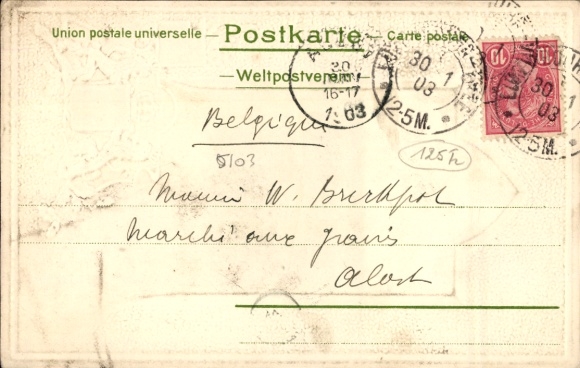 Union postale universelle – Postkarte – Carte postale
– Weltpostverein
30
16-17
1903
30
1
03
12-5M.
10 10
30
1
03
12-5M.
Belgique
5/03
125 h
W.
Marché aux grains
Alost